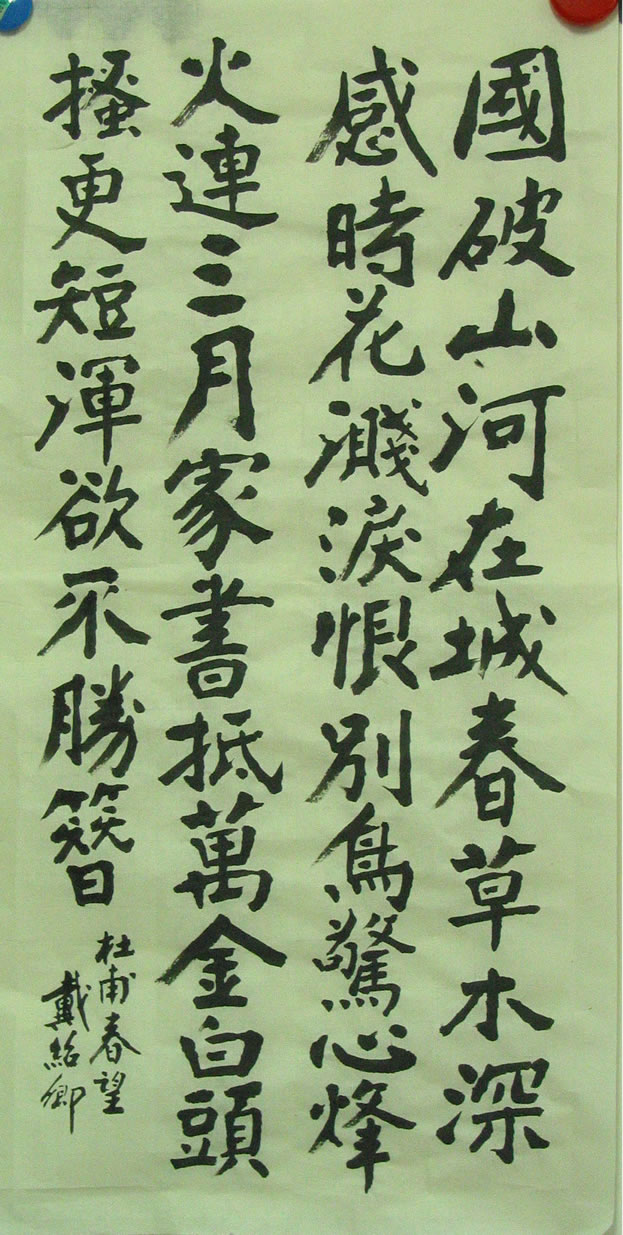 國破山河在城春草木深
感時花濺淚恨別鳥驚心烽
火連三月家書抵萬金白頭
搔更短渾欲不勝簪
杜甫春望
戴紹卿